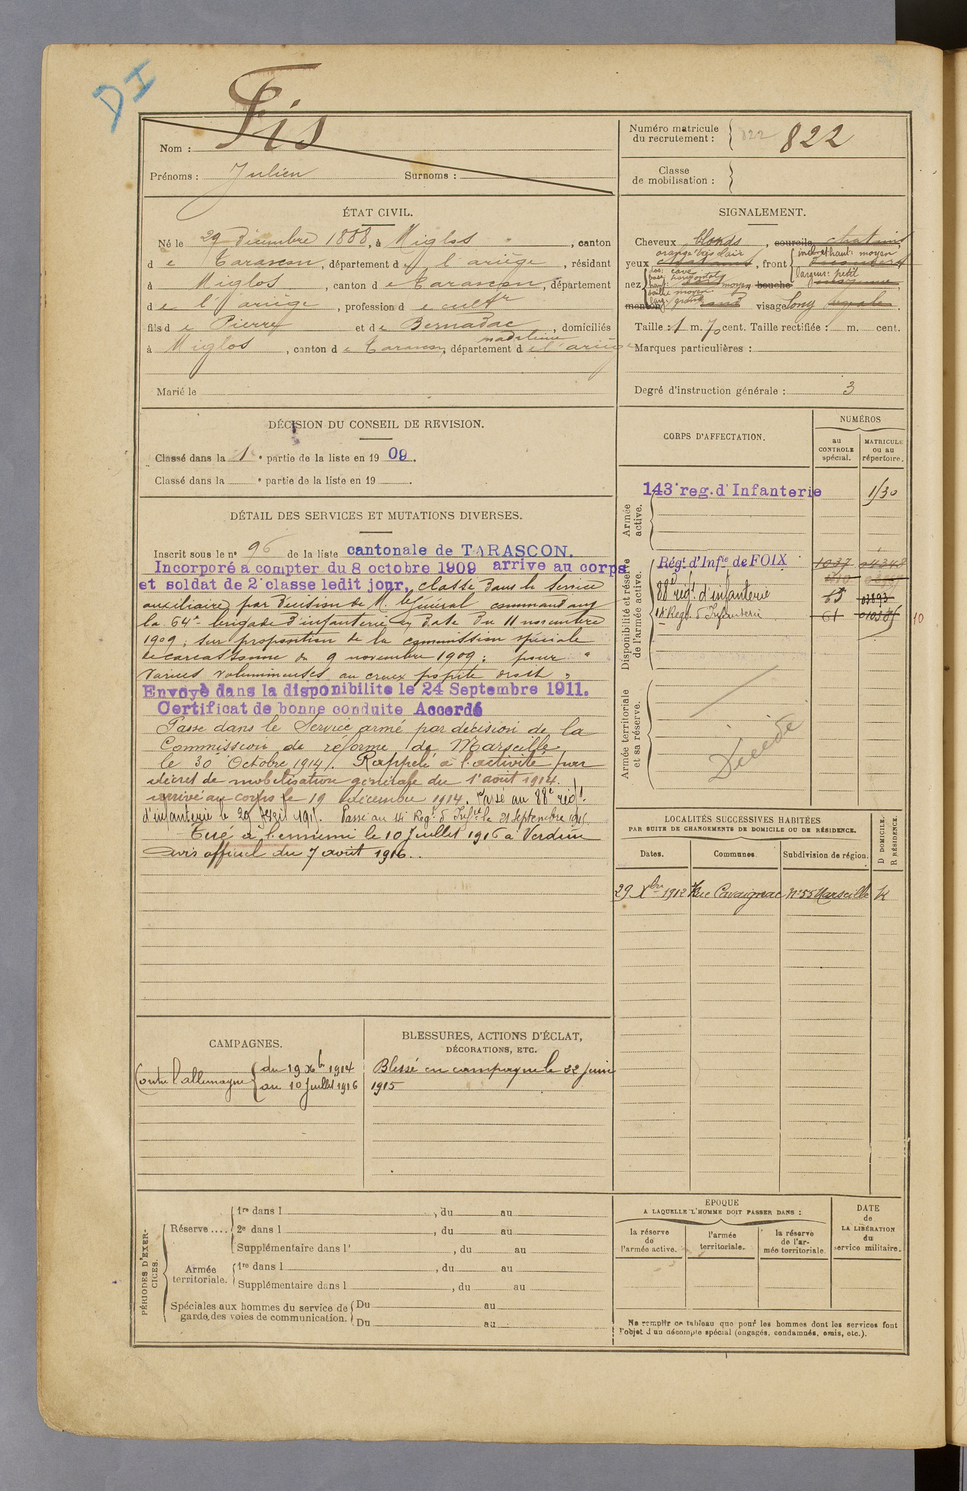 DI
Nom : Fis
Prénoms : Julien Surnoms :
Numéro matricule du recrutement : 822 822
Classe de mobilisation :
ÉTAT CIVIL.
Né le 29 Décembre 1888, à Miglos, canton
de Tarascon, département de l'ariège, résidant
à Miglos, canton de Tarascon, département
de l'ariège, profession de cultr
fils de Pierre et de Bernadac madeleine, domiciliés
à Miglos, canton de Tarascon, département de l'ariège
Marié le
SIGNALEMENT.
Cheveux blonds, sourcils chatain
yeux orangé clair, front
nez moyen bouche moyenne
menton visage Long
Taille : 1 m. 70 cent. Taille rectifiée : m. cent.
Marques particulières :
Degré d'instruction générale : 3
DÉCISION DU CONSEIL DE REVISION.
Classé dans la 1e partie de la liste en 1909.
Classé dans la e partie de la liste en 19 .
DÉTAIL DES SERVICES ET MUTATIONS DIVERSES.
Inscrit sous le n° 96 de la liste cantonale de TARASCON.
Incorporé à compter du 8 octobre 1909 arrive au corps
et soldat de 2e classe ledit jour, classé dans le service
auxiliaire par décision de M. le Général commandant
la 64e brigade d'infanterie en date du 11 novembre
1909, sur proposition de la commission spéciale
de carcassonne du 9 novembre 1909 : pour "
varices volumineuses au creux poplité droit "
Envoyé dans la disponibilite le 24 Septembre 1911.
Certificat de bonne conduite Accordé
Passé dans le Service armé par décision de la
Commission de réforme de Marseille
le 30 Octobre 1914. Rappelé à l'activité par
décret de mobilisation générale du 1er août 1914.
arrivé au corps le 19 décembre 1914. Passé au 88e régt
d'infanterie le 29 Avril 1915. Passé au 14e Régt d'Infie le 21 Septembre 1915.
Tué à l'ennemi le 10 Juillet 1916 à Verdun
avis officiel du 7 août 1916.
CORPS D'AFFECTATION.
NUMÉROS
au CONTROLE spécial.
MATRICULE ou au répertoire.
Armée active.
143e reg. d'Infanterie 1130
Disponibilité et réserve de l'armée active.
Régt d'Infie de FOIX 1037
88e régt d'infanterie
14e Régt d'Infanterie 61 10
Armée territoriale et sa réserve.
Décédé
LOCALITÉS SUCCESSIVES HABITÉES
PAR SUITE DE CHANGEMENTS DE DOMICILE OU DE RÉSIDENCE.
Dates. Communes. Subdivision de région. D DOMICILE. R RÉSIDENCE.
29 Xbre 1912 Rue Cavaignac N°55 Marseille R
CAMPAGNES.
Contre l'allemagne du 19 Xbre 1914
au 10 Juillet 1916
BLESSURES, ACTIONS D'ÉCLAT,
DÉCORATIONS, ETC.
Blessé en campagne le 22 juin
1915
PÉRIODES D'EXERCICES.
Réserve .... 1re dans l , du au
2e dans l , du au
Supplémentaire dans l' , du au
Armée territoriale. 1re dans l , du au
Supplémentaire dans l , du au
Spéciales aux hommes du service de garde des voies de communication. Du au
Du au
EPOQUE
A LAQUELLE L'HOMME DOIT PASSER DANS :
la réserve de l'armée active.
l'armée territoriale.
la réserve de l'armée territoriale.
DATE de LA LIBÉRATION du service militaire.
Ne remplir ce tableau que pour les hommes dont les services font
l'objet d'un décompte spécial (engagés, condamnés, omis, etc.).